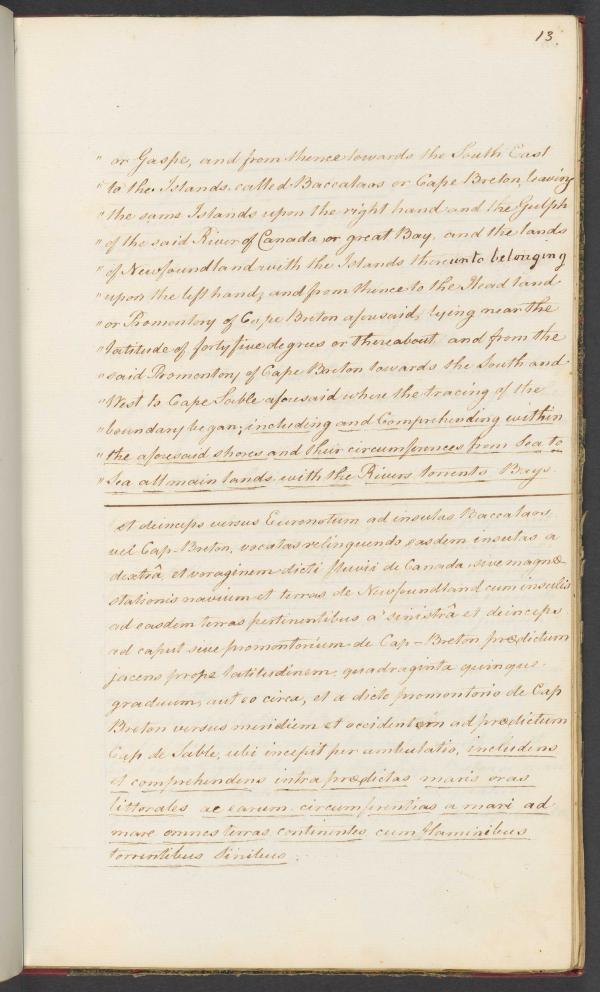 13.
" or Gaspe, and from thence towards the South East
" to the Islands called Baccalaos or Cape Breton, leaving
" the same Islands upon the right hand and the Gulph
" of the said River of Canada, or great Bay, and the lands
" of Newfoundland with the Islands thereunto belonging
" upon the left hand; and from thence to the Head land
" or Promontory of Cape Breton aforesaid, lying near the
" latitude of forty five degrees or thereabout and from the
" said Promontory of Cape Breton towards the South and
" West to Cape Sable aforesaid where the tracing of the
" boundary began; including and Comprehending within
" the aforesaid shores and their circumferences from Sea to
" Sea all main lands with the Rivers torrents Bays.
et deinceps versus Euronotum ad insulas Baccalaos
vel Cap-Breton, vocatas relinquendo easdem insulas a
dextrâ, et voraginem dicti fluvii de Canada, sive magnæ
stationis navium et terras de Newfoundland cum insulis
ad easdem terras pertinentibus a' sinistrâ et deinceps
ad caput sive promontorium de Cap-Breton prædictum
jacens prope latitudinem quadraginta quinque
graduum, aut eo circa, et a dicto promontorio de Cap
Breton versus meridiem et occidentem ad prædictum
Cap de Sable, ubi incepit per ambulatio, includens
et comprehendens intra prædictas maris oras
littorales ac earum circumferentias a mari ad
mare omnes terras continentes cum fluminibus
torrentibus sinibus.